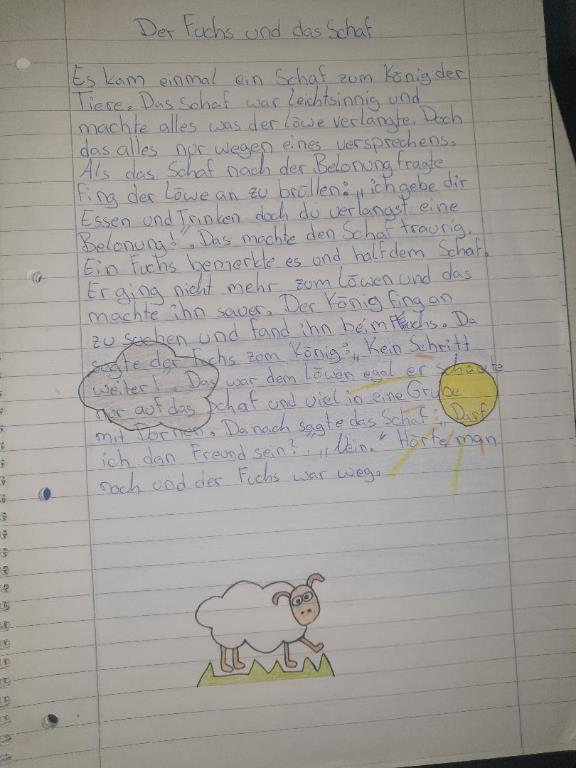 Der Fuchs und das Schaf
Es kam einmal ein Schaf zum König der
Tiere. Das Schaf war leichtsinnig und
machte alles was der löwe verlangte. Doch
das alles nur wegen eines versprechens.
Als das Schaf nach der Belonung fragte
fing der Löwe an zu brüllen: „ich gebe dir
Essen und Trinken doch du verlangst eine
Belonung!". Das machte den Schaf traurig.
Ein Fuchs bemerkte es und half dem Schaf.
Er ging nicht mehr zum Löwen und das
machte ihn sauer. Der König fing an
zu suchen und fand ihn beim Fuchs. Da
sagte der Fuchs zom König: „Kein Schritt
weiter! Das war dem Löwen egal er schaute
nur auf das Schaf und viel in eine Grube
mit Dornen. Danach sagte das Schaf: „Darf
ich dan Freund sein? „Nein." Hörte man
noch und der Fuchs war weg.